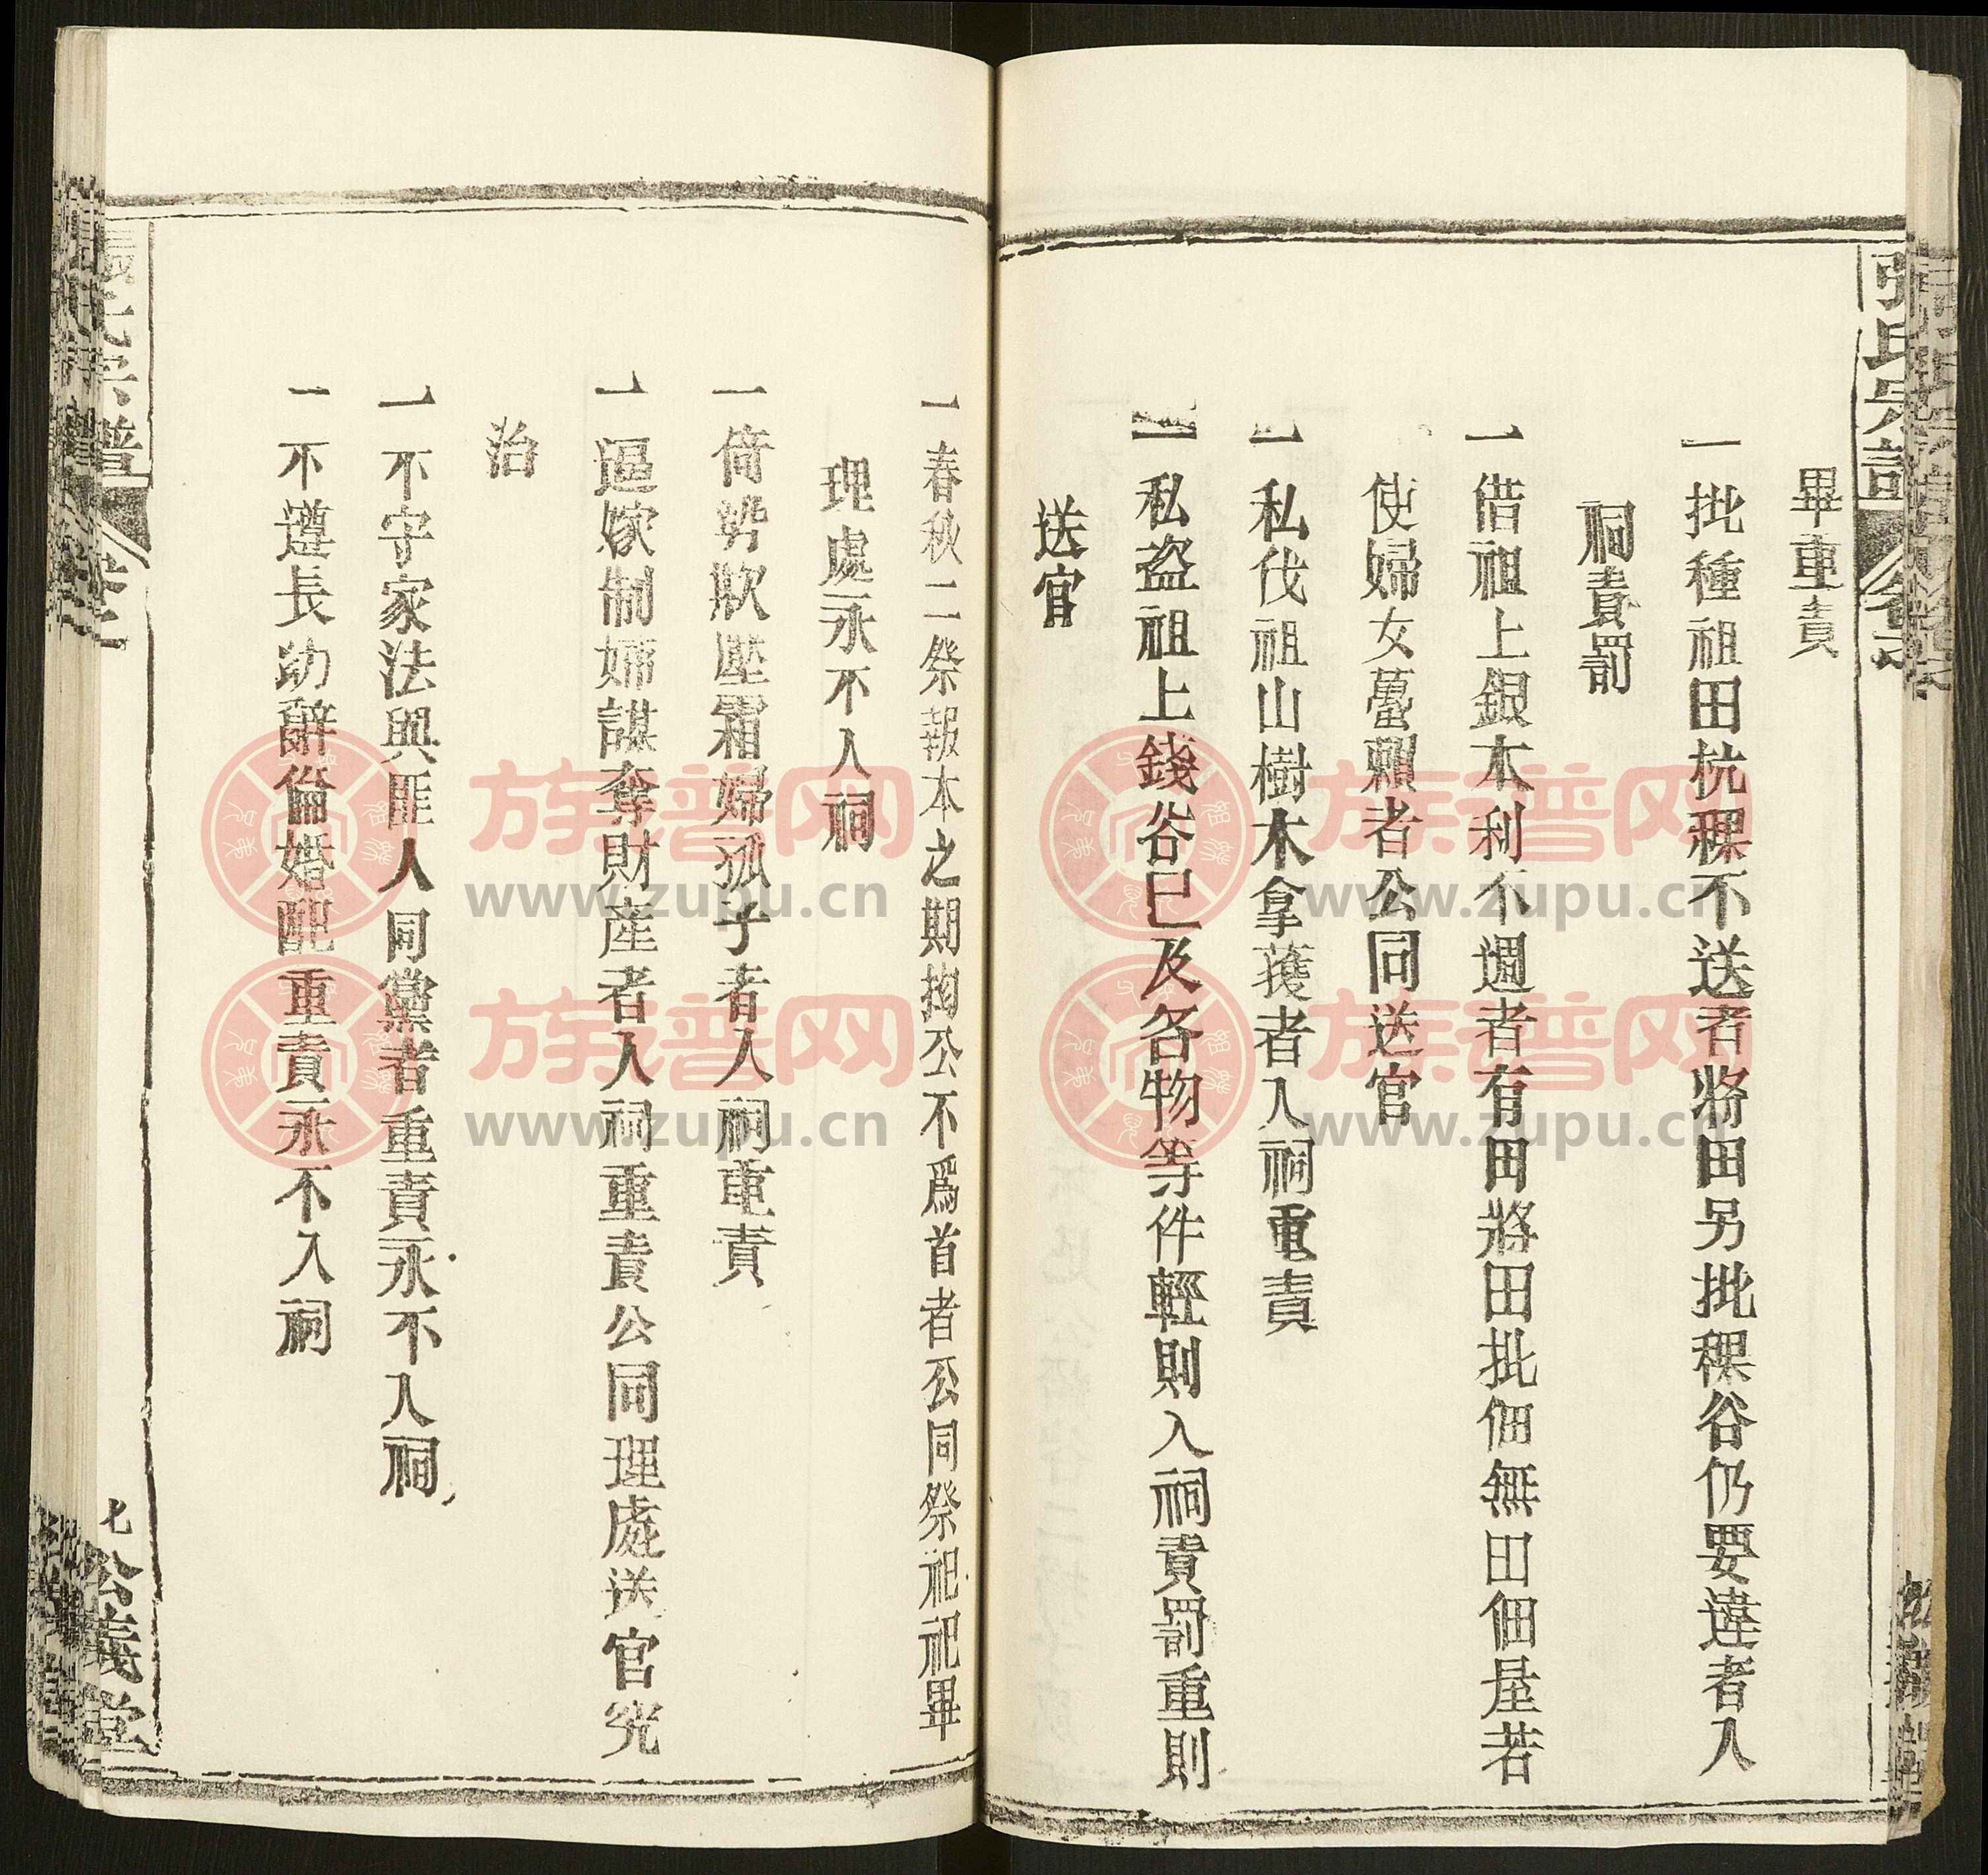 張氏宗譜
畢重責
一批種祖田抗稞不送者將田另批稞谷仍要違者入
祠責罰
一借祖上銀本利不週者有田將田批佃無田佃屋若
使婦女蠆賴者公同送官
一私伐祖山樹木拿獲者入祠重責
一私盜祖上錢谷已及各物等件輕則入祠責罰重則
送官
一春秋二祭報本之期掏公不爲首者公同祭祀祀畢
理處永不入祠
一倚勢欺壓霜婦孤子者入祠重責
一逼嫁制婦謀奪財產者入祠重責公同理處送官究
治
一不守家法與匪人同黨者重責永不入祠
一不遵長幼辭倫婚配重責永不入祠
氏宗譜
七
公義堂
族譜网
www.zupu.cn
族譜网
www.zupu.cn
族譜网
www.zupu.cn
族譜网
www.zupu.cn